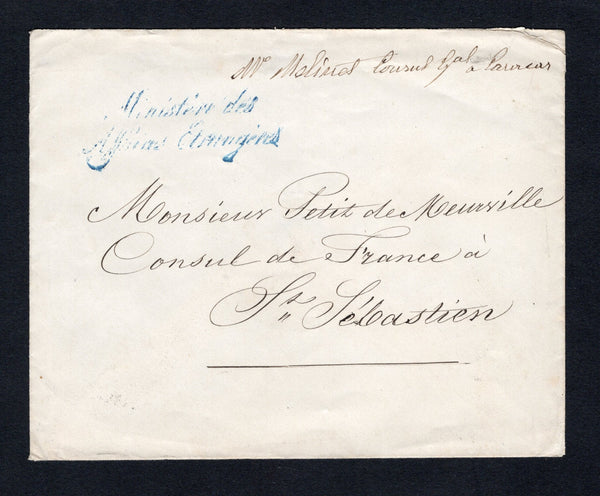 Mr Molinet Consul Gal à
Ministère des
Affaires Etrangères
Monsieur Petit de Meurville
Consul de France à
St. Sébastien